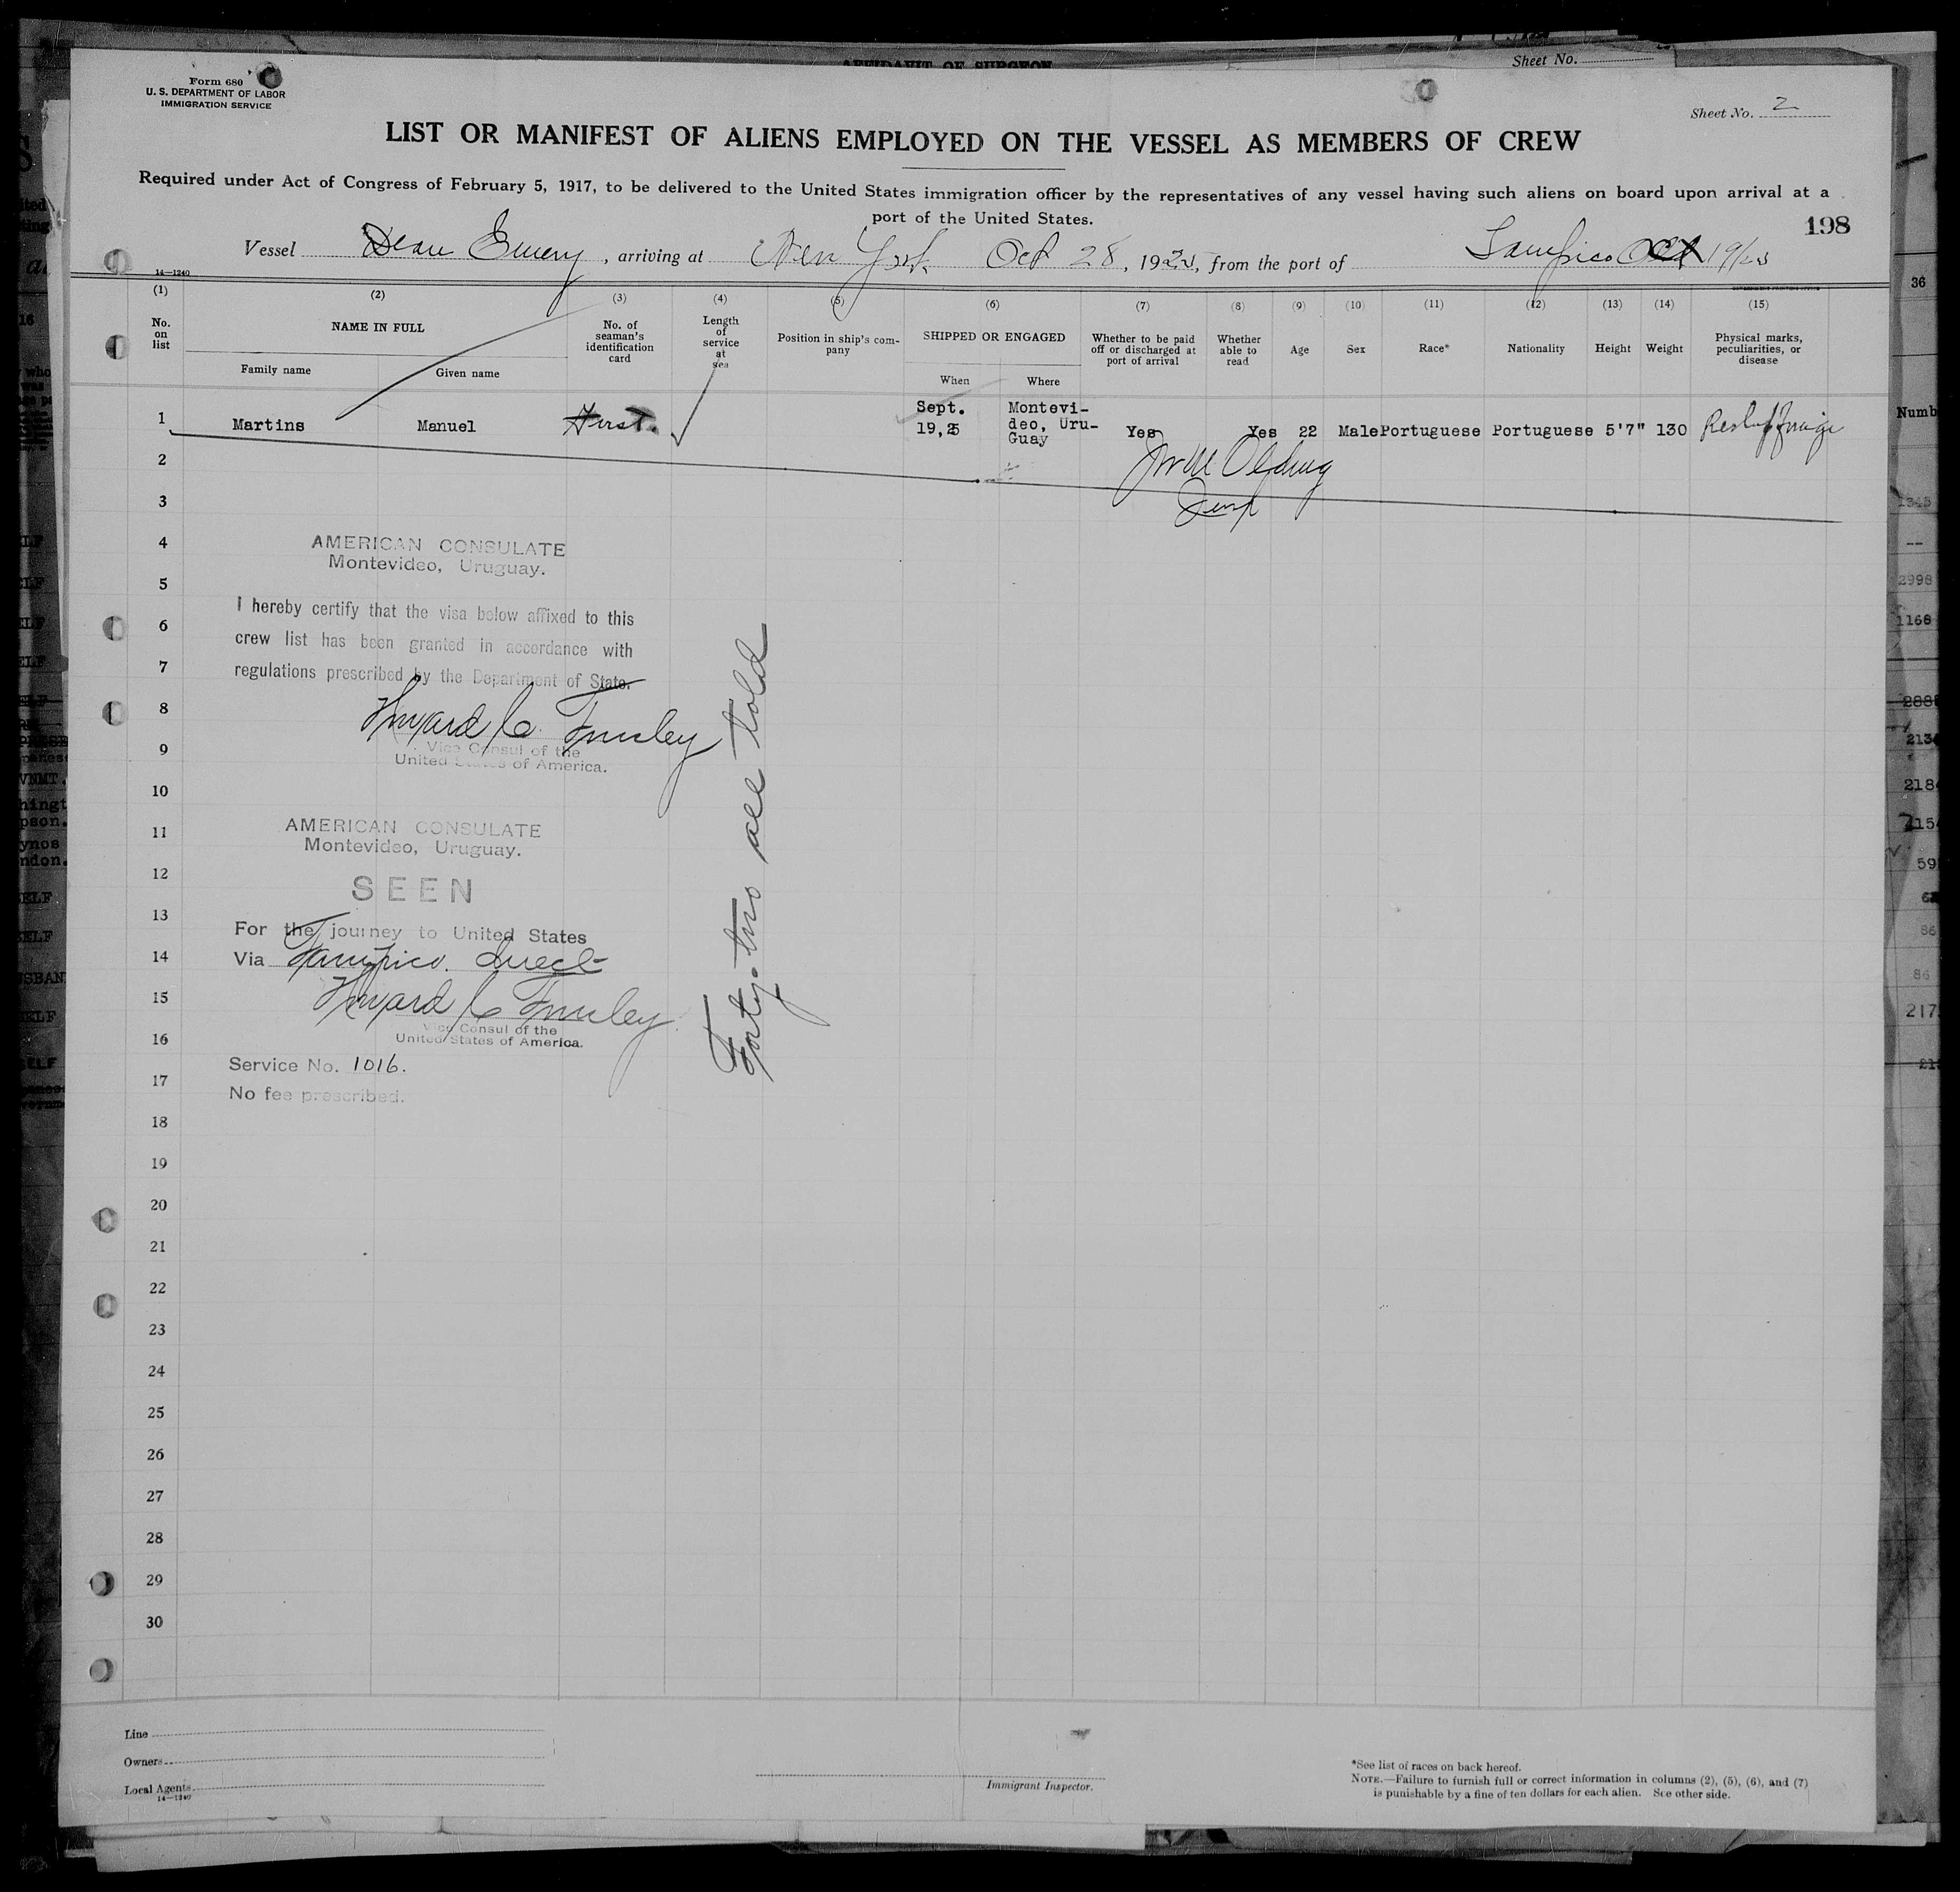 AFFIDAVIT OF SURGEON
Sheet No.
Form 680
U. S. DEPARTMENT OF LABOR
IMMIGRATION SERVICE
Sheet No. 2
LIST OR MANIFEST OF ALIENS EMPLOYED ON THE VESSEL AS MEMBERS OF CREW
Required under Act of Congress of February 5, 1917, to be delivered to the United States immigration officer by the representatives of any vessel having such aliens on board upon arrival at a
port of the United States.
198
Vessel Dean Emery, arriving at New York Oct 28, 19, from the port of Tampico Oct 19/
14-1240
(1) (2) (3) (4) (5) (6) (7) (8) (9) (10) (11) (12) (13) (14) (15)
No. on list
NAME IN FULL
Family name
Given name
No. of seaman's identification card
Length of service at sea
Position in ship's company
SHIPPED OR ENGAGED
When
Where
Whether to be paid off or discharged at port of arrival
Whether able to read
Age
Sex
Race*
Nationality
Height
Weight
Physical marks, peculiarities, or disease
1 Martins Manuel First. Sept. 19, Montevideo, Uru-Guay Yes Yes 22 Male Portuguese Portuguese 5'7" 130
2
3
4
AMERICAN CONSULATE
Montevideo, Uruguay.
5
I hereby certify that the visa below affixed to this
6
crew list has been granted in accordance with
7
regulations prescribed by the Department of State.
8
9
Vice Consul of the
United States of America.
10
11
AMERICAN CONSULATE
Montevideo, Uruguay.
12
SEEN
13
For the journey to United States
14
Via Tampico. Direct
15
Vice Consul of the
16
United States of America.
Service No. 1016.
17
No fee prescribed.
Forty-two all told
18
19
20
21
22
23
24
25
26
27
28
29
30
Line
Owners
Local Agents
14-1240
Immigrant Inspector.
*See list of races on back hereof.
NOTE.—Failure to furnish full or correct information in columns (2), (5), (6), and (7)
is punishable by a fine of ten dollars for each alien. See other side.